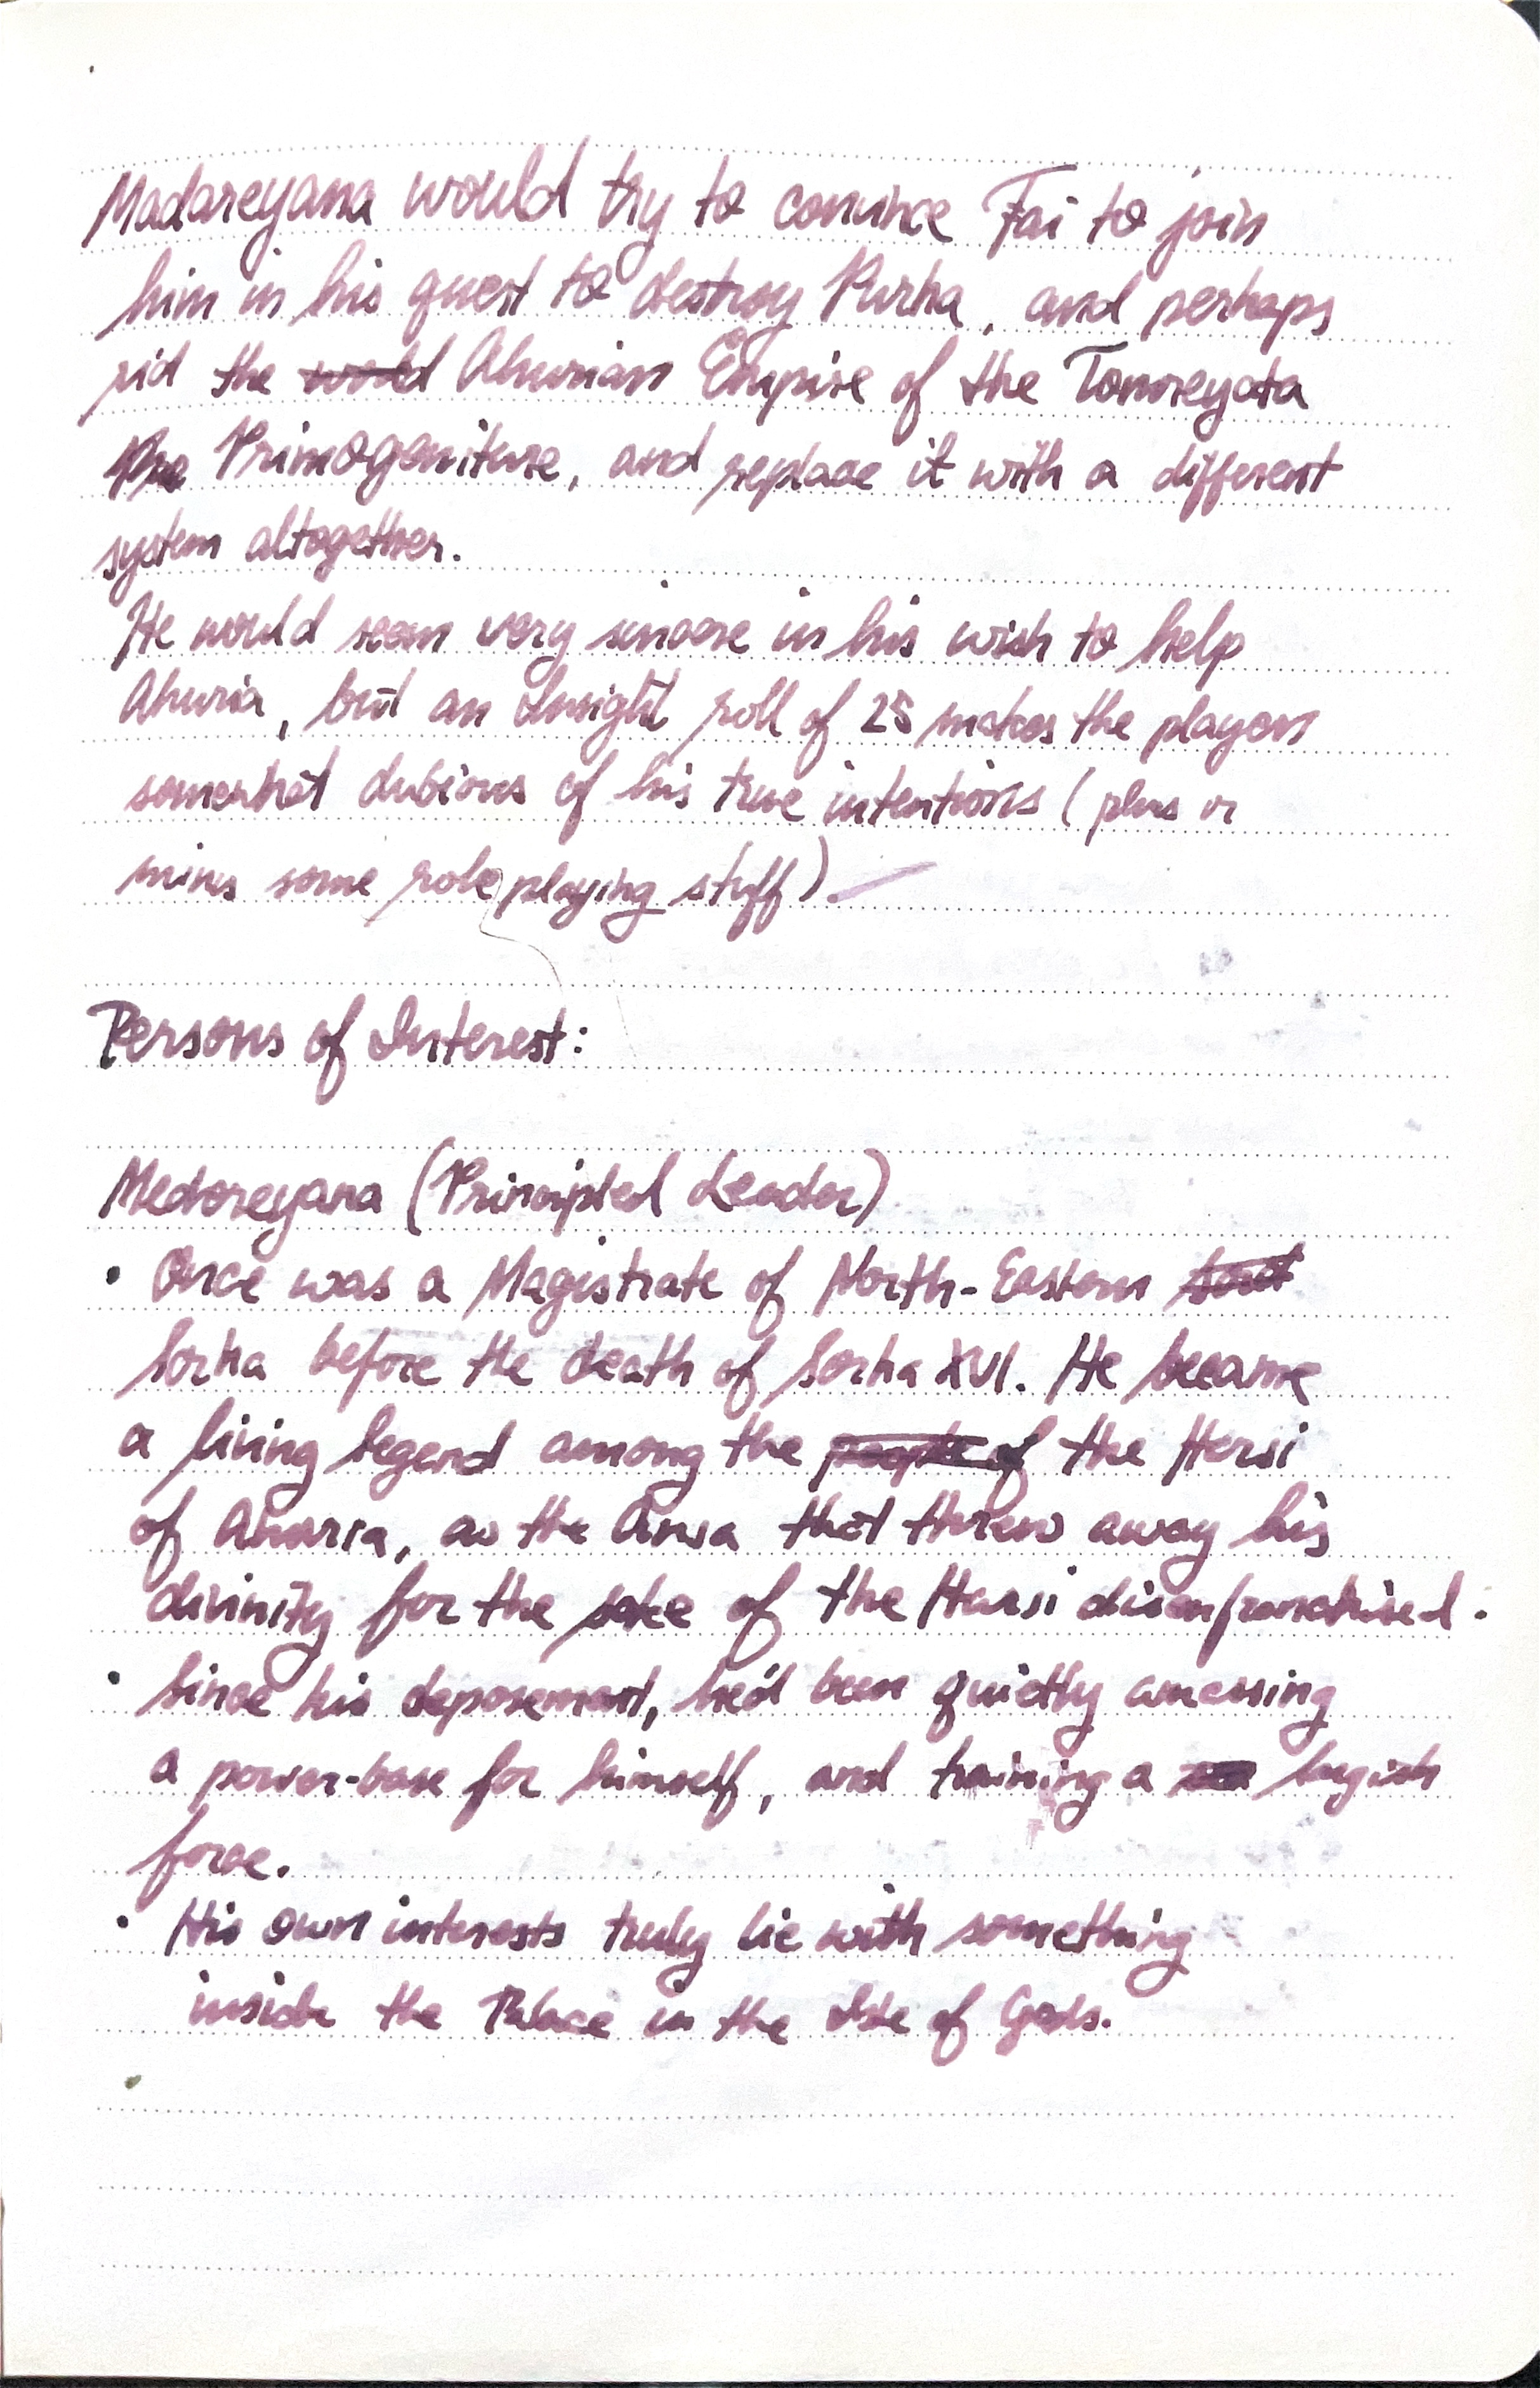 Madareyana would try to convince Fai to join
him in his quest to destroy Purha, and perhaps
rid the world Ahurian Empire of the Tomreyata
Pre Primogeniture, and replace it with a different
system altogether.
He would seem very sincere in his wish to help
Ahuria, but an Insight roll of 25 makes the players
somewhat dubious of his true intentions (plus or
minus some role playing stuff).
Persons of Interest:
Medoreyana (Principled Leader)
• Once was a Magistrate of North-Eastern
Sorha before the death of Sorha XVI. He became
a living legend among the people of the Hersi
of Ahuria, as the Arva that threw away his
divinity for the sake of the Hersi disenfranchised.
• Since his deposement, he'd been quietly amassing
a power-base for himself, and training a
force.
• His own interests truly lie with something
inside the Palace in the Isle of Gods.